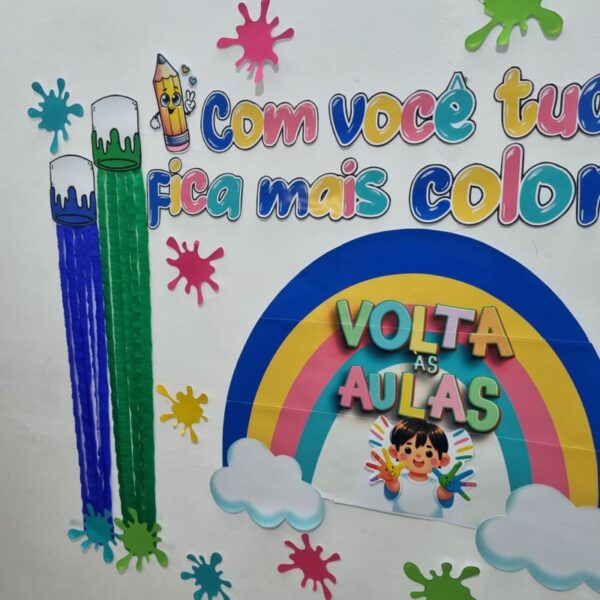 Com você tud
fica mais color
VOLTA
ÀS
AULAS